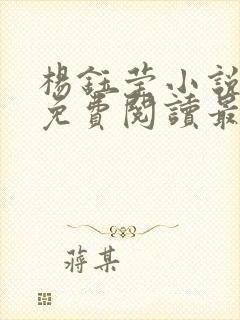 楊鈺莹小説
免費閱讀最
蔣某